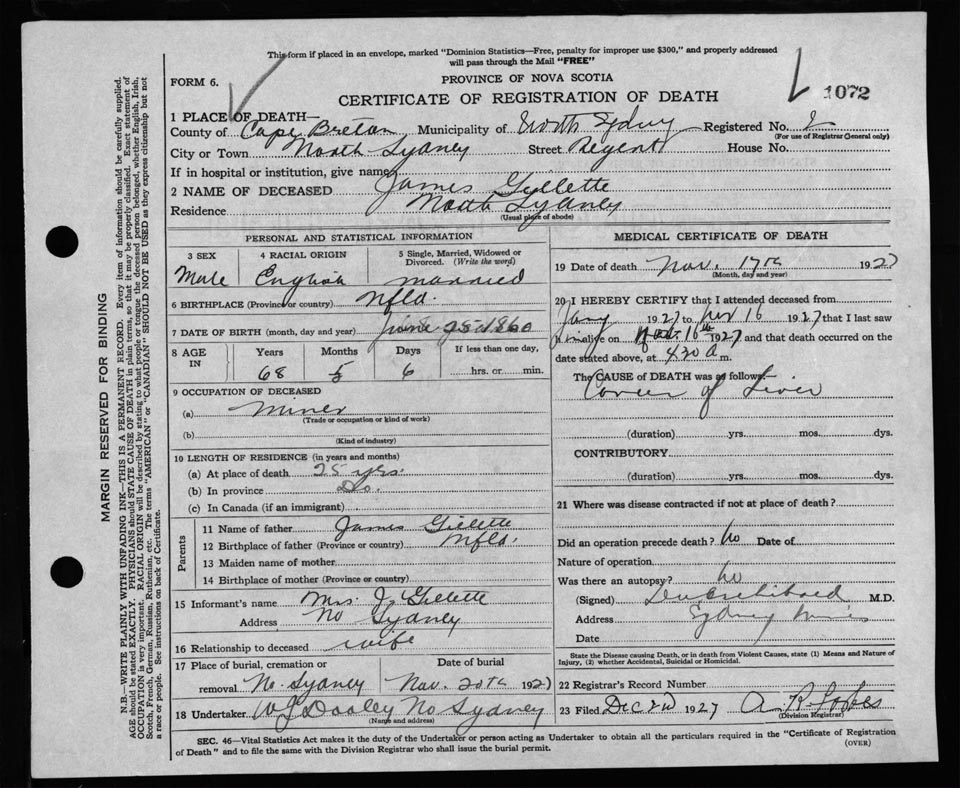 This form if placed in an envelope, marked "Dominion Statistics—Free, penalty for improper use $300," and properly addressed
will pass through the Mail "FREE"
FORM 6.
PROVINCE OF NOVA SCOTIA
1072
CERTIFICATE OF REGISTRATION OF DEATH
1 PLACE OF DEATH—
County of Cape Breton Municipality of North Sydney Registered No.
(For use of Registrar General only)
City or Town North Sydney Street Regent House No.
If in hospital or institution, give name
2 NAME OF DECEASED James Gillette
Residence North Sydney
(Usual place of abode)
PERSONAL AND STATISTICAL INFORMATION
3 SEX 4 RACIAL ORIGIN 5 Single, Married, Widowed or
Divorced. (Write the word)
Male English married
6 BIRTHPLACE (Province or country) Nfld.
7 DATE OF BIRTH (month, day and year) June 25-1860
8 AGE IN Years Months Days If less than one day,
68 5 6 hrs. or min.
9 OCCUPATION OF DECEASED
(a) Miner
(Trade or occupation or kind of work)
(b)
(Kind of industry)
10 LENGTH OF RESIDENCE (in years and months)
(a) At place of death 25 yrs.
(b) In province Do.
(c) In Canada (if an immigrant)
Parents
11 Name of father James Gillette
12 Birthplace of father (Province or country) Nfld.
13 Maiden name of mother
14 Birthplace of mother (Province or country)
15 Informant's name Mrs. J. Gillette
Address No Sydney
16 Relationship to deceased wife
17 Place of burial, cremation or Date of burial
removal No. Sydney Nov. 20th 1927
18 Undertaker W J Dooley No Sydney
(Name and address)
MEDICAL CERTIFICATE OF DEATH
19 Date of death Nov. 17th 1927
(Month, day and year)
20 I HEREBY CERTIFY that I attended deceased from
1927 to Nov 16 1927 that I last saw
him alive on 16th 1927 and that death occurred on the
date stated above, at 4 20 a m.
The CAUSE of DEATH was as follows:
Cancer of Liver
(duration) yrs. mos. dys.
CONTRIBUTORY
(duration) yrs. mos. dys.
21 Where was disease contracted if not at place of death?
Did an operation precede death? No Date of
Nature of operation
Was there an autopsy? No
(Signed) M.D.
Address Sydney Mines
Date
State the Disease causing Death, or in death from Violent Causes, state (1) Means and Nature of
Injury, (2) whether Accidental, Suicidal or Homicidal.
22 Registrar's Record Number
23 Filed Dec 2nd 1927
(Division Registrar)
SEC. 46—Vital Statistics Act makes it the duty of the Undertaker or person acting as Undertaker to obtain all the particulars required in the "Certificate of Registration
of Death" and to file the same with the Division Registrar who shall issue the burial permit.
(OVER)
MARGIN RESERVED FOR BINDING
N.B.—WRITE PLAINLY WITH UNFADING INK—THIS IS A PERMANENT RECORD. Every item of information should be carefully supplied.
AGE should be stated EXACTLY. PHYSICIANS should STATE CAUSE OF DEATH in plain terms, so that it may be properly classified. Exact statement of
OCCUPATION is very important. RACIAL ORIGIN will be described by stating to what people or tongue the deceased person belonged, whether English, Irish,
Scotch, French, German, Russian, Ruthenian, etc. The terms "AMERICAN" or "CANADIAN" SHOULD NOT BE USED as they express citizenship but not
a race or people. See instructions on back of Certificate.